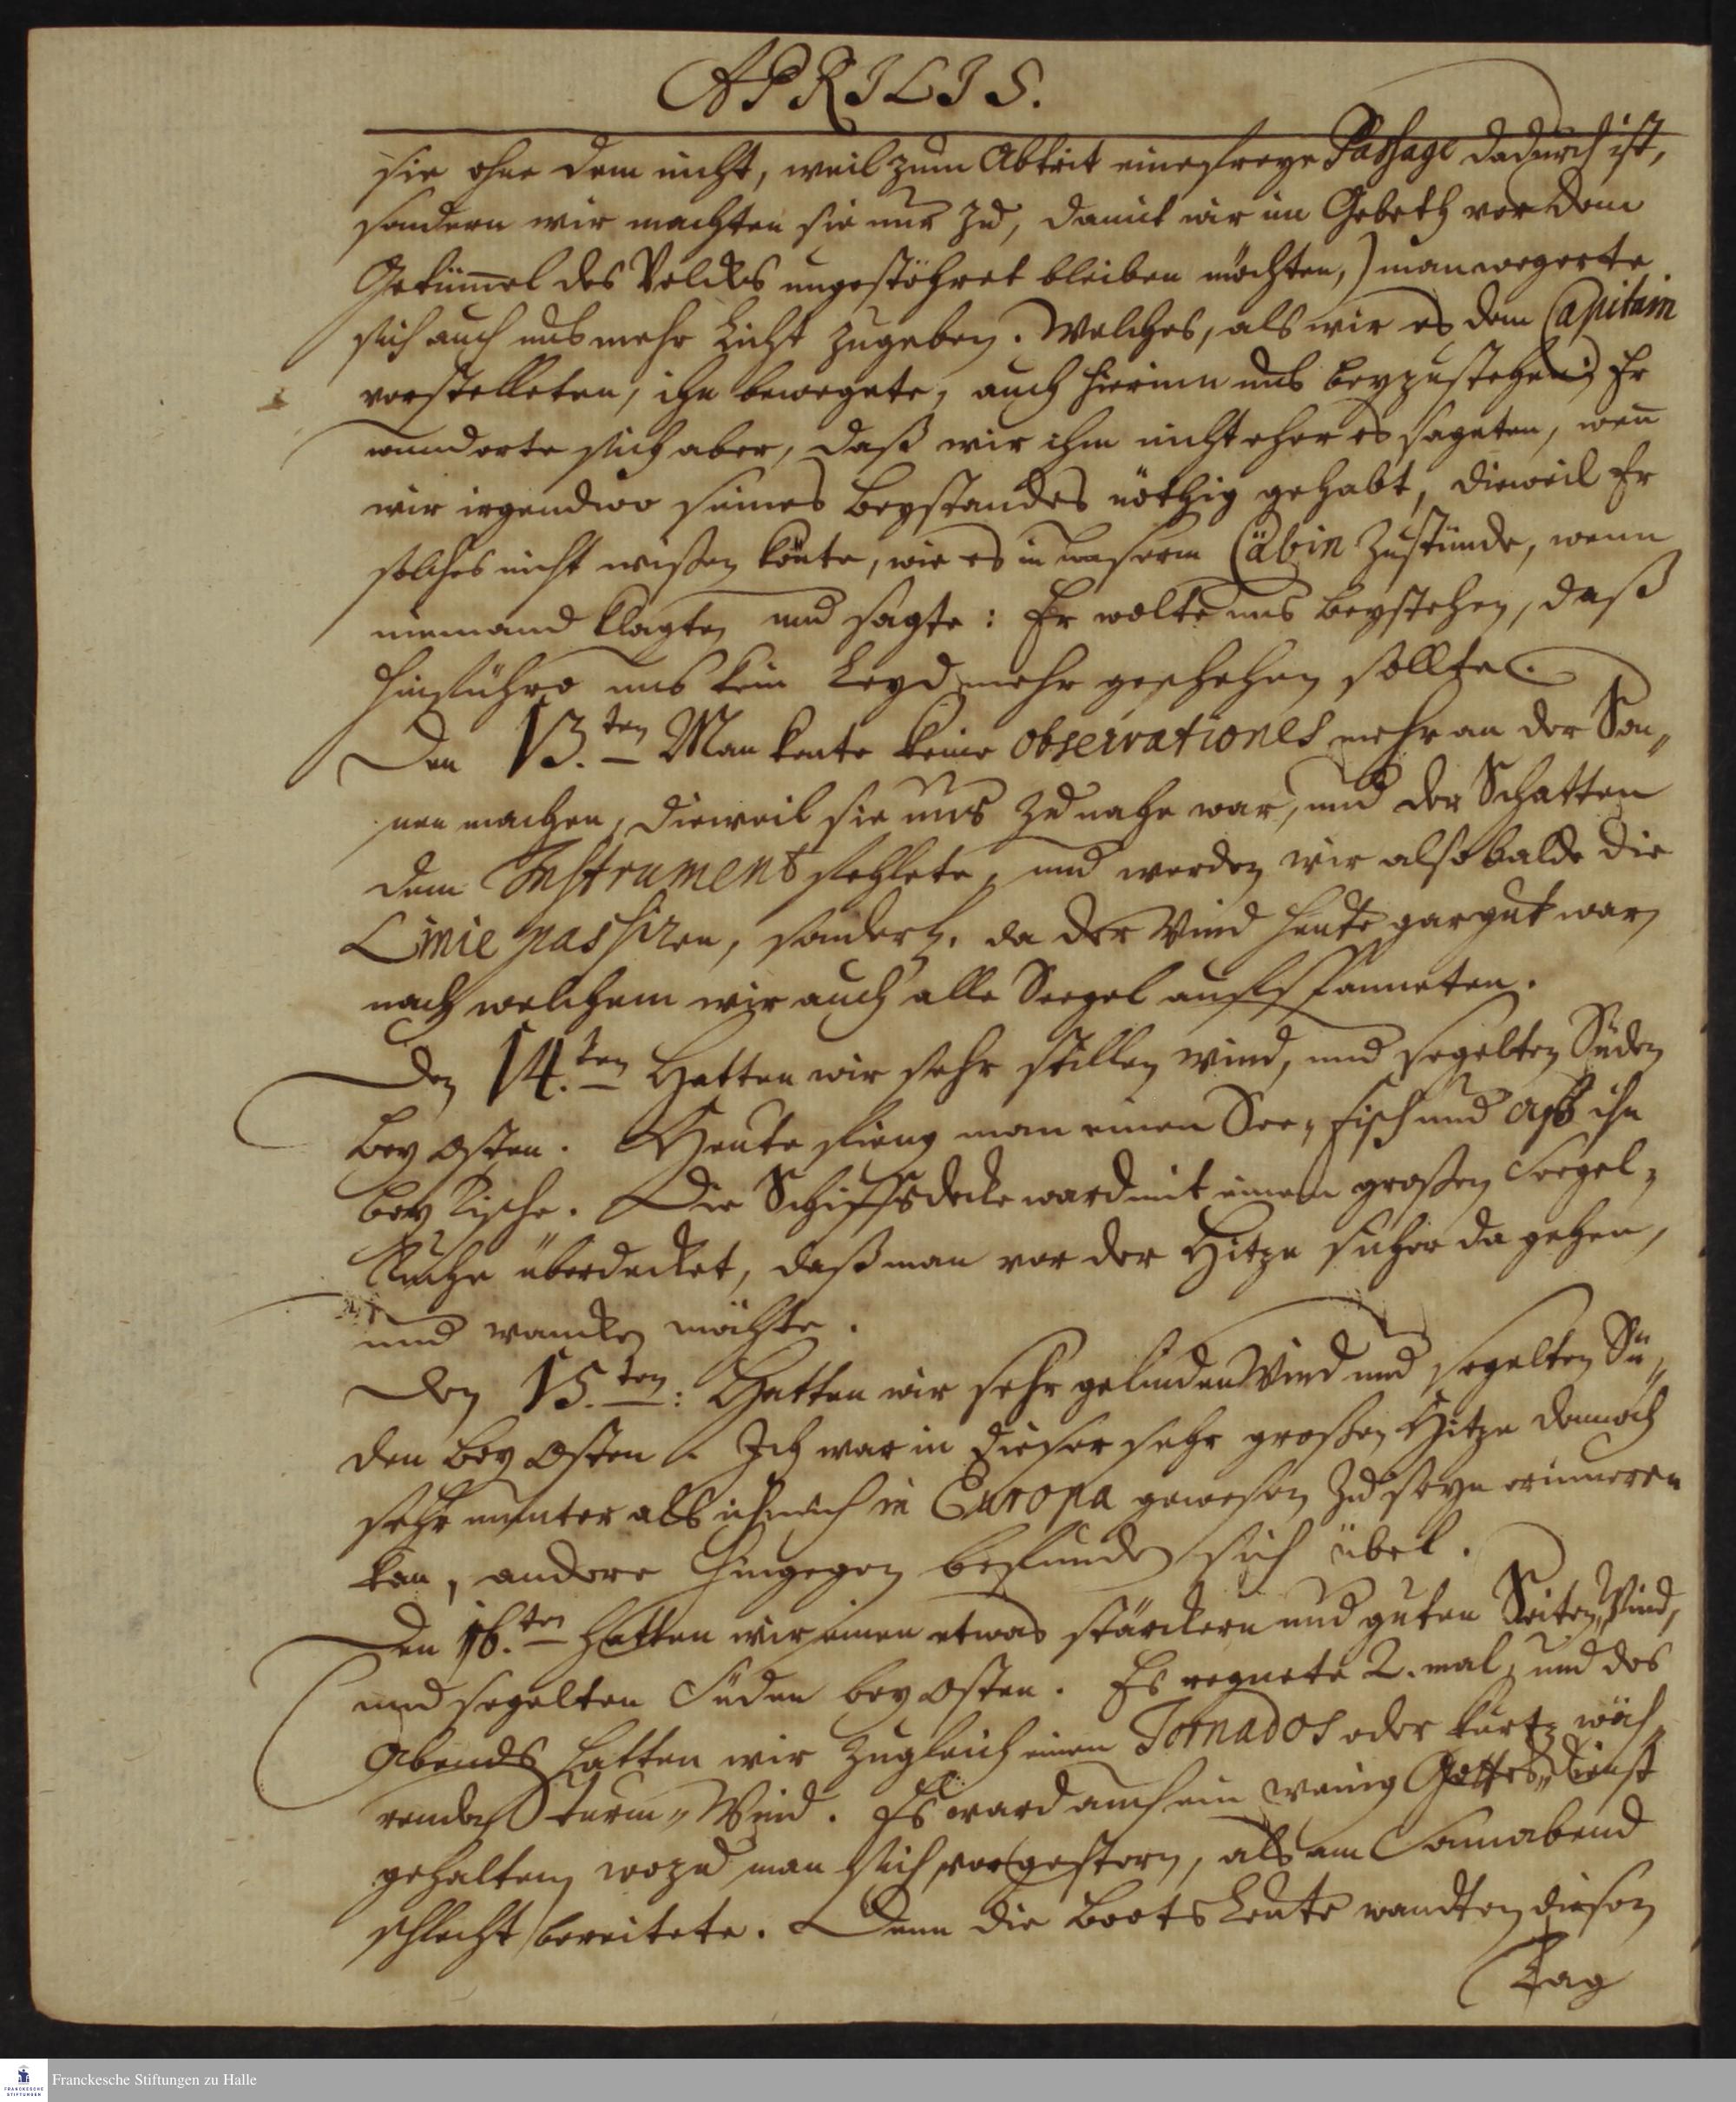 APRILIS.
sie ohne dem nicht, weil zum Abtrit eine freye Passage dadurch ist,
sondern wir machten sie nur zu, damit wir im Gebeth vor dem
Getüm̄el des Volcks ungestöhret bleiben möchten,) man wegerte
sich auch uns mehr Licht zugeben. Welches, als wir es dem Capitain
vorstelleten, ihn bewegete, auch hierinn uns beyzustehen; Er
wunderte sich aber, daß wir ihm nicht eher es sageten, wen̄
wir irgendwo seines Beystandes nöthig gehabt, dieweil Er
solches nicht wißen könte, wie es in unserm Cäbin zustünde, wenn
niemand klagte, und sagte: Er wolte uns beystehen, daß
hinführo uns kein Leyd mehr geschehen sollte.
Den 13.ten Man konte keine observationes mehr an der Son„
nen machen, dieweil sie uns zu nahe war, und der Schatten
dem Instrument fehlete, und werden wir also balde die
Linie passiren, sonderl. da der Wind heute gar gut war,
nach welchem wir auch alle Seegel aufspanneten.
Den 14.ten Hatten wir sehr stillen Wind, und segelten Süden
bey Osten. Heute fieng man einen See„Fisch und aß ihn
bey Tische. Die Schiffsdecke ward mit einem großen Seegel„
Tuche überdecket, daß man vor der Hitze sicher da gehen,
und wancken möchte.
Den 15.ten: Hatten wir sehr gelinden Wind und segelten Sü„
den bey Osten. Ich war in dieser sehr großen Hitze dennoch
sehr munter als ich mich in Europa gewesen zu seyn erinneren
kan, andere hingegen befunden sich übel.
Den 16.ten Hatten wir einen etwas stärckern und guten Seiten„Wind,
und segelten Süden bey Osten. Es regnete 2. mal, und des
Abends hatten wir zugleich einen Tornados oder kurtz wäh„
renden Sturm„Wind. Es ward auch ein wenig Gottes„dienst
gehalten, wozu man sich vorgestern, als am Sonnabend
schlecht bereitete. Denn die Bootsleute wandten diesen
Tag
Franckesche Stiftungen zu Halle
FRANCKESCHE
STIFTUNGEN